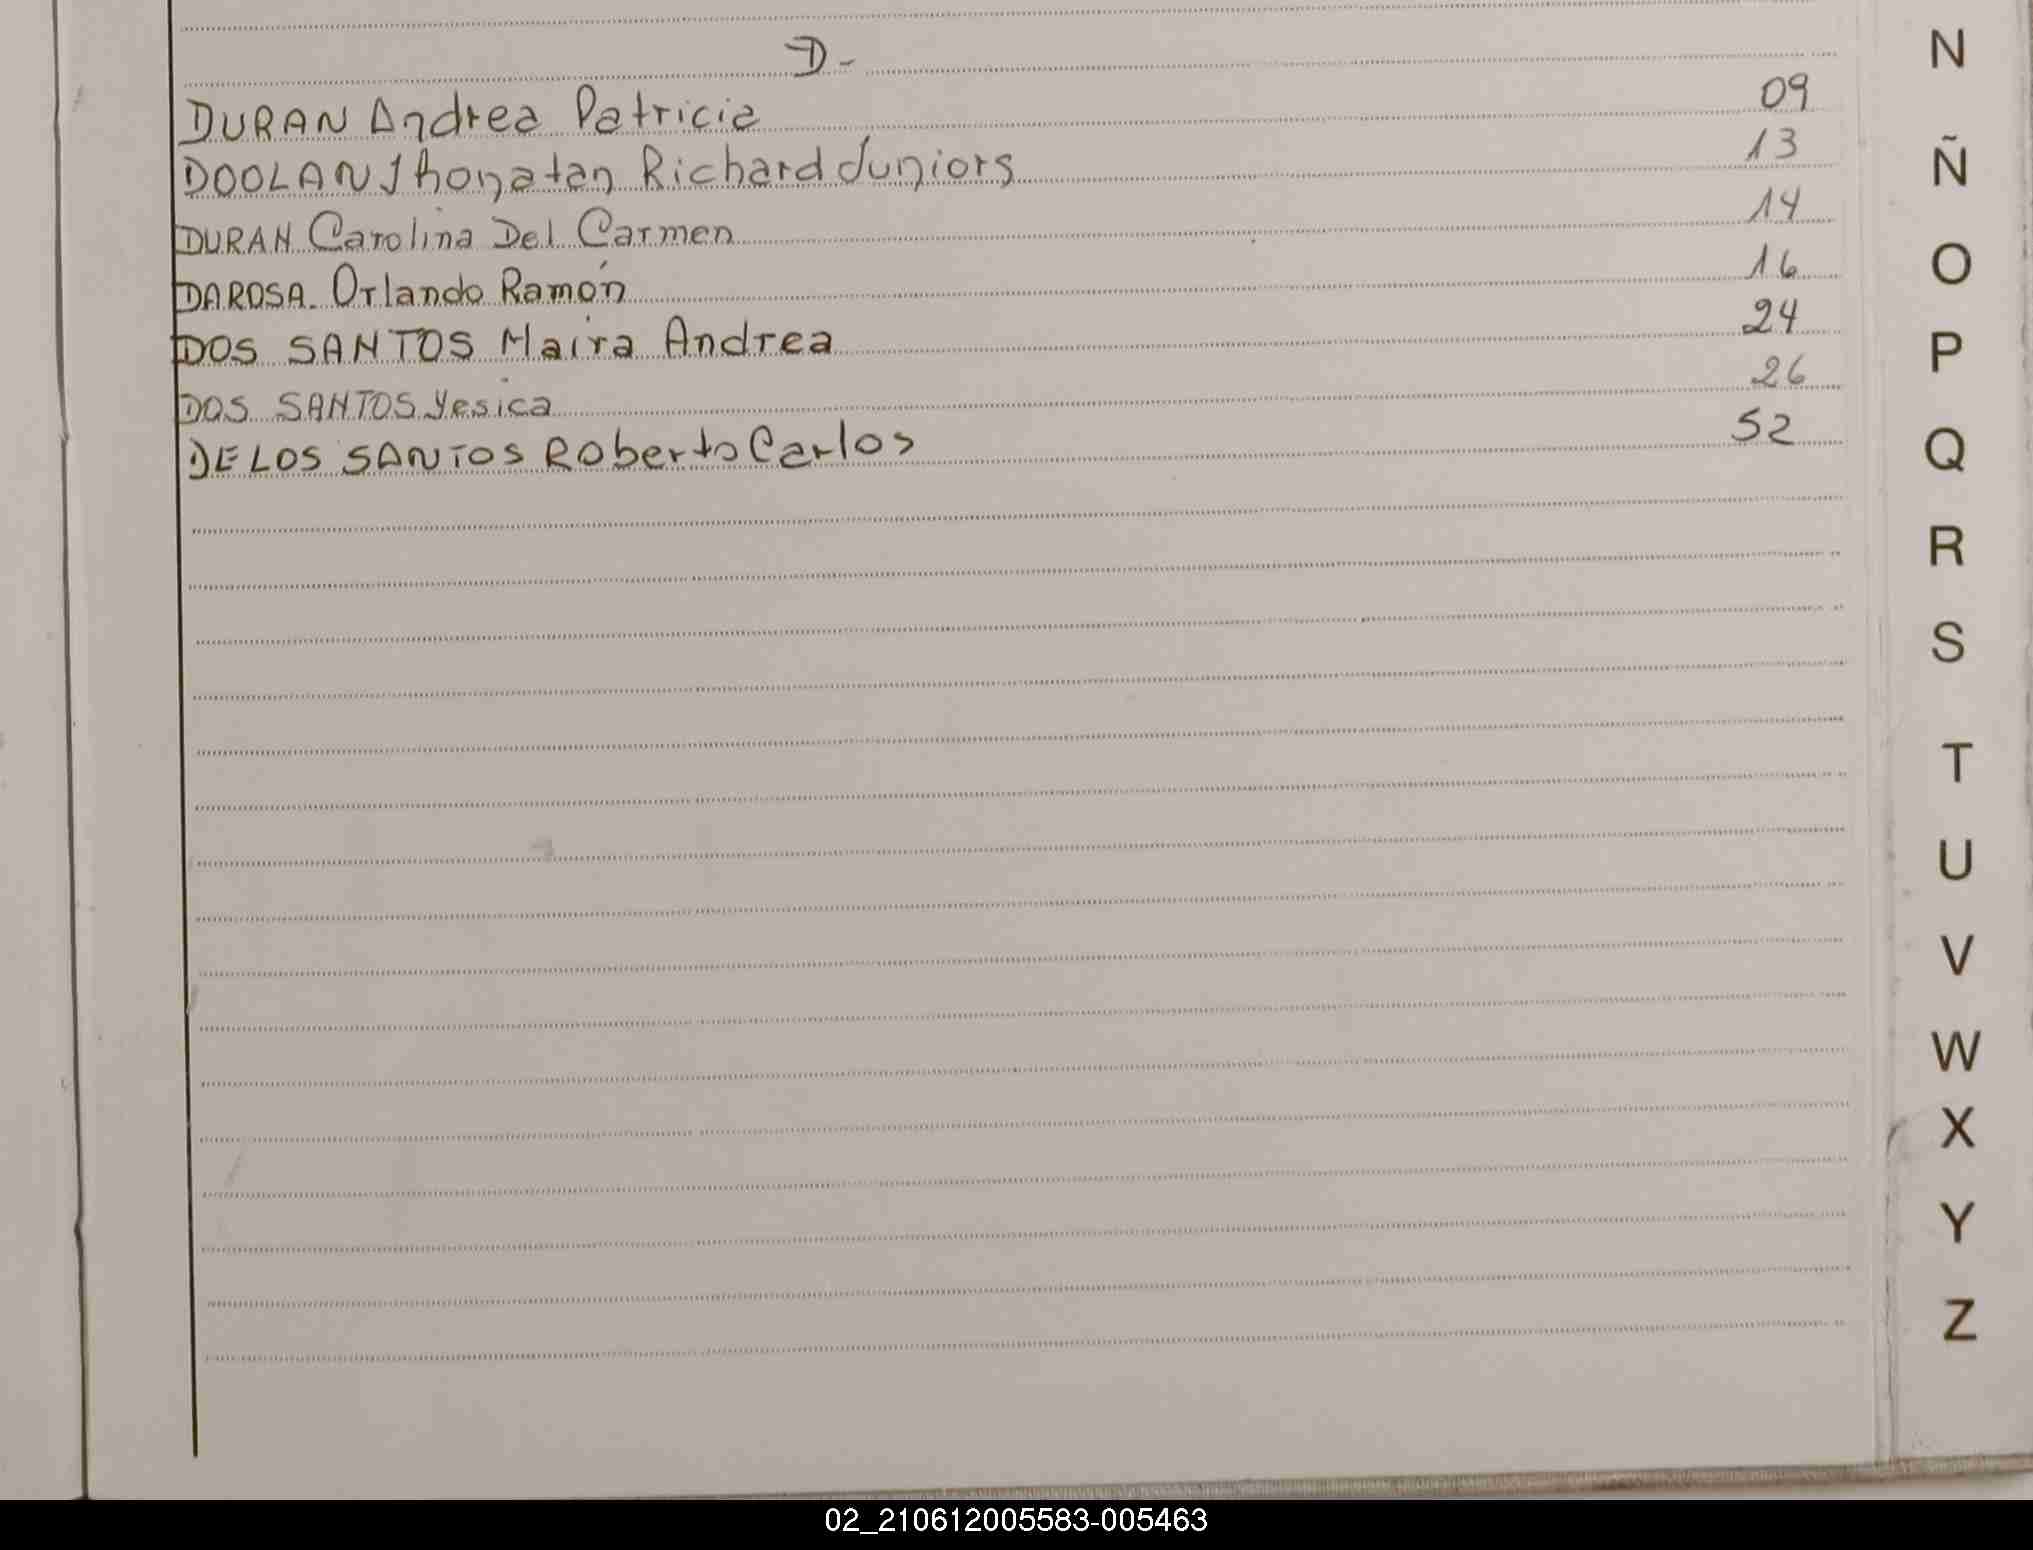 D-
DURAN Andrea Patricia 09
DOOLAN Jhonatan Richard Juniors 13
DURAN Carolina Del Carmen 14
DAROSA Orlando Ramón 16
DOS SANTOS Maira Andrea 24
DOS SANTOS Yesica 26
DE LOS SANTOS Roberto Carlos 52
N
Ñ
O
P
Q
R
S
T
U
V
W
X
Y
Z
02_210612005583-005463